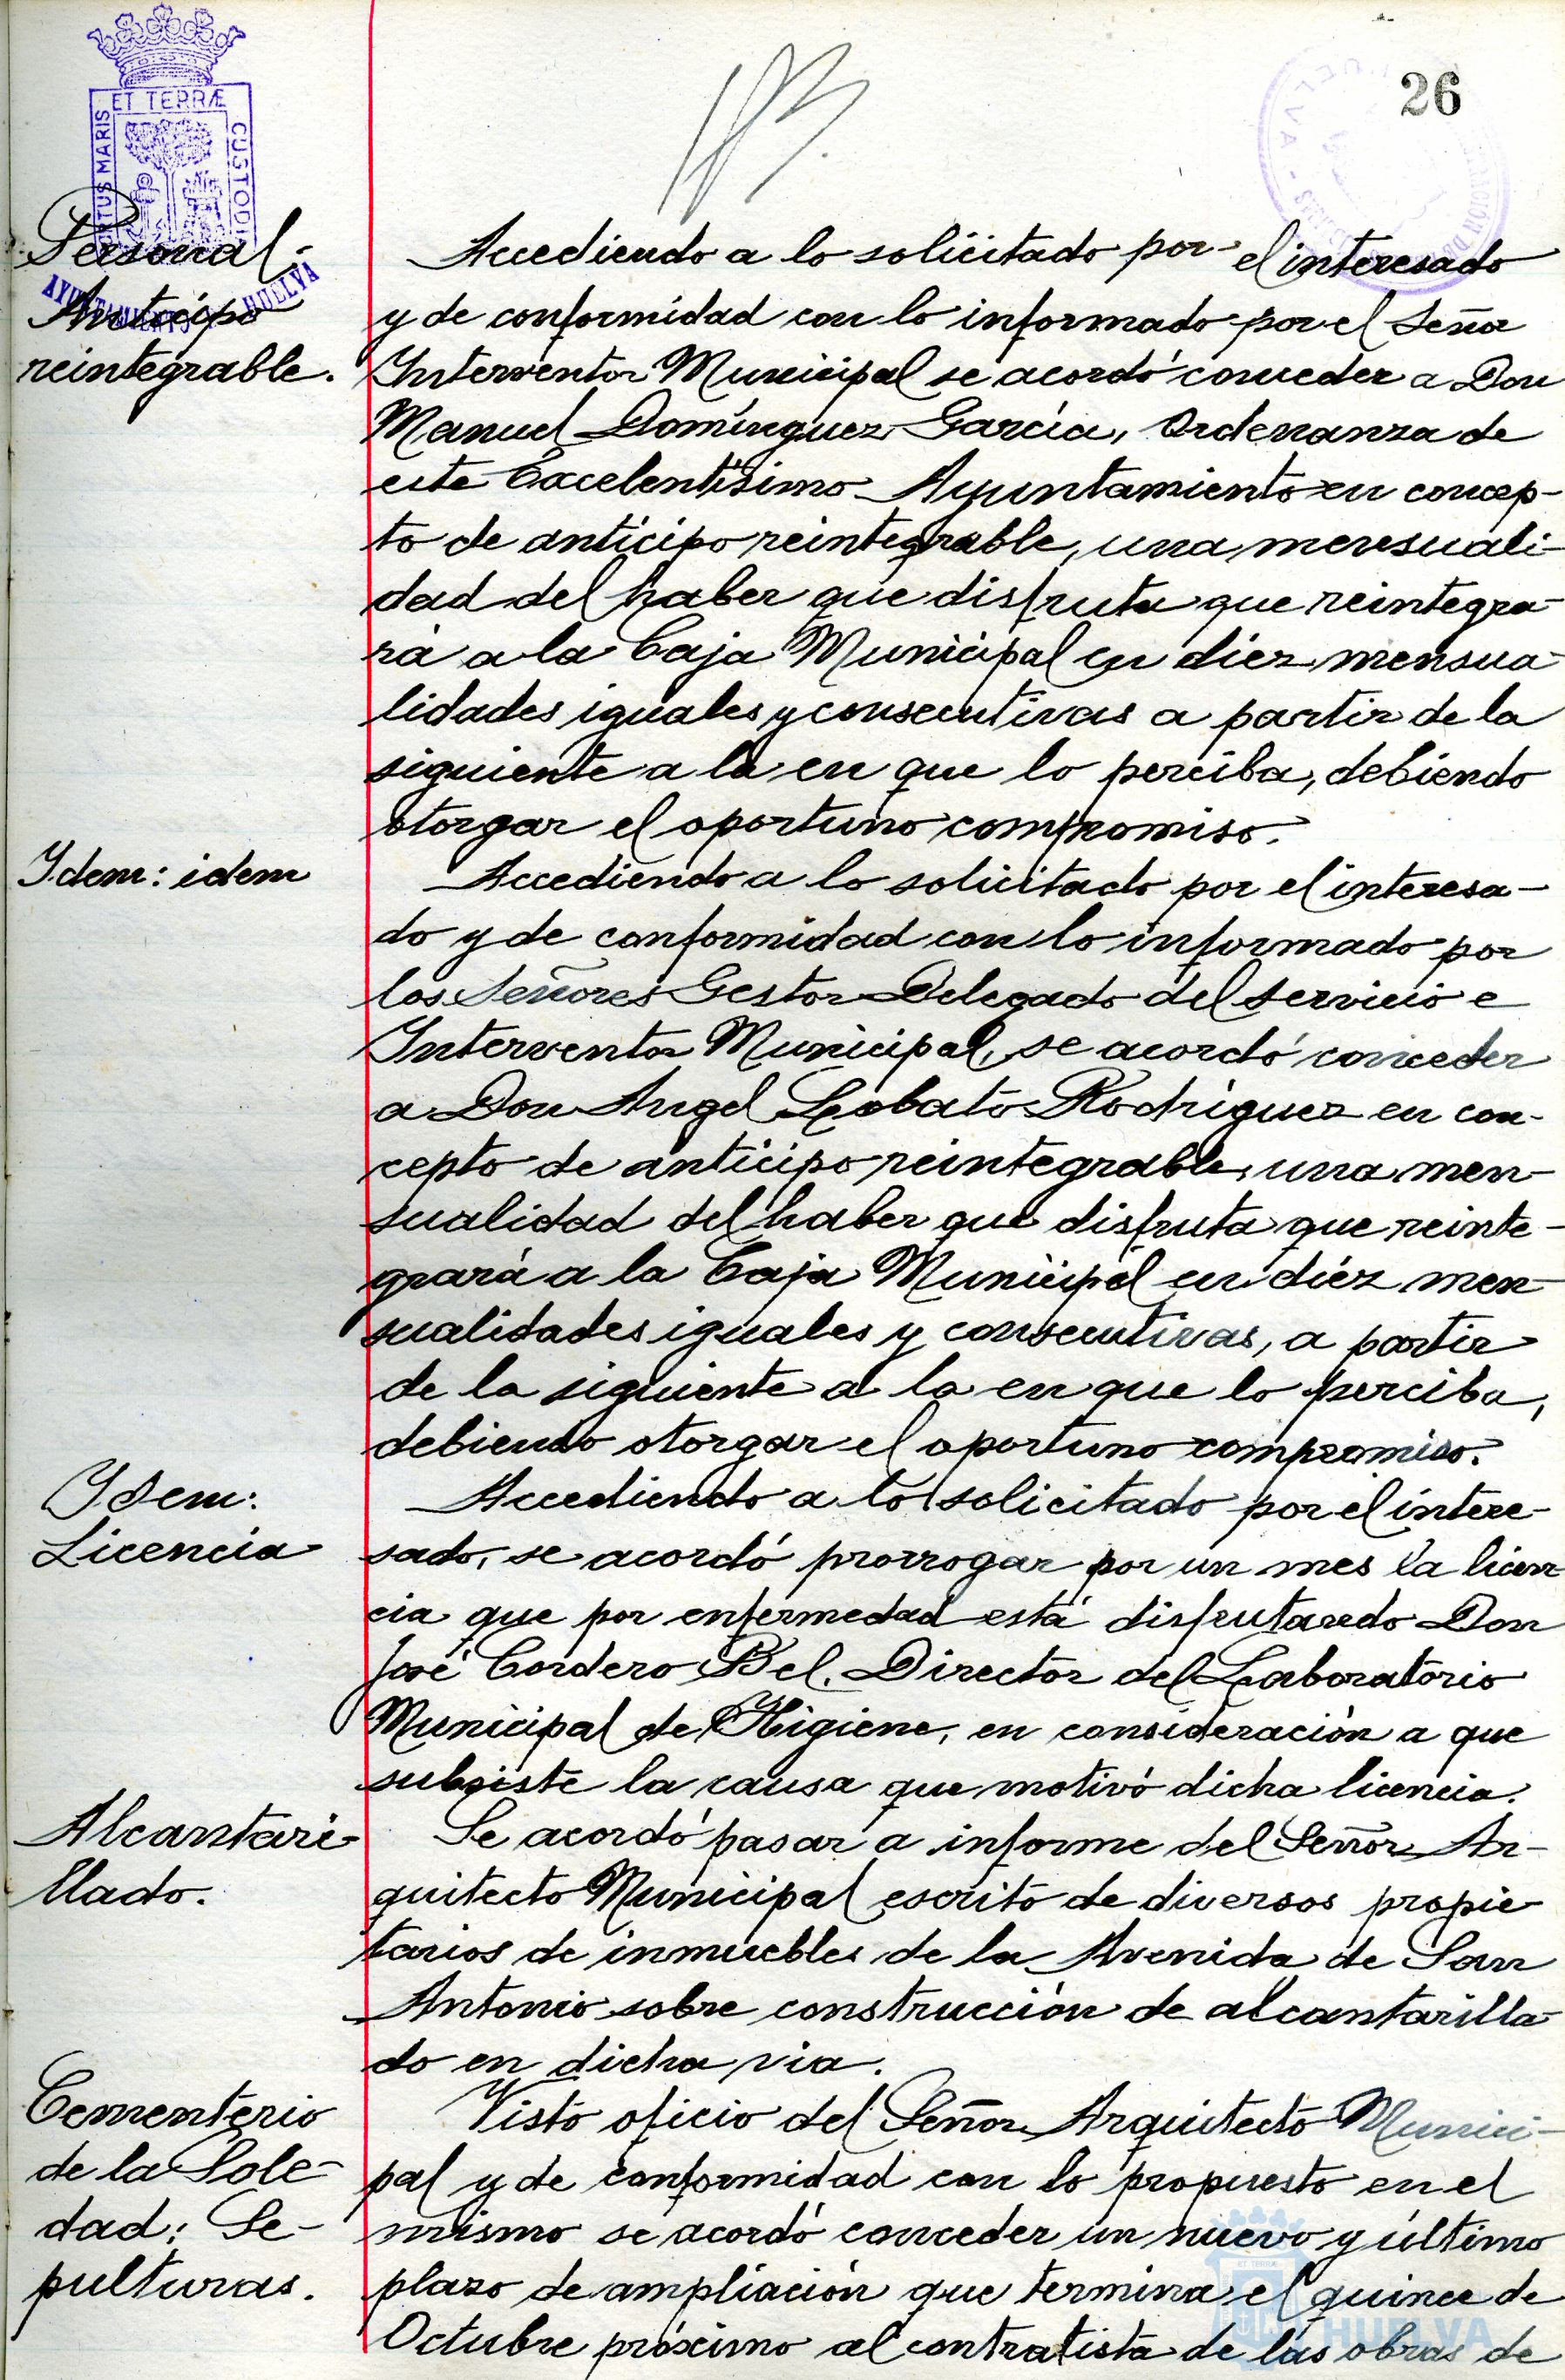 26
ET TERRÆ
PORTUS MARIS
CUSTODIA
AYUNTAMIENTO HUELVA
Personal:
Anticipo
reintegrable.
Accediendo a lo solicitado por el interesado
y de conformidad con lo informado por el Señor
Interventor Municipal se acordó conceder a Don
Manuel Domínguez García, Ordenanza de
este Excelentísimo Ayuntamiento en concep-
to de anticipo reintegrable, una mensuali-
dad del haber que disfruta que reintegra-
rá a la Caja Municipal en diez mensua-
lidades iguales y consecutivas a partir de la
siguiente a la en que lo perciba, debiendo
otorgar el oportuno compromiso.
Idem: idem
Accediendo a lo solicitado por el interesa-
do y de conformidad con lo informado por
los Señores Gestor Delegado del servicio e
Interventor Municipal, se acordó conceder
a Don Angel Lobato Rodríguez en con-
cepto de anticipo reintegrable, una men-
sualidad del haber que disfruta que reinte-
grará a la Caja Municipal en diez men-
sualidades iguales y consecutivas, a partir
de la siguiente a la en que lo perciba,
debiendo otorgar el oportuno compromiso.
Idem:
Licencia
Accediendo a lo solicitado por el intere-
sado, se acordó prorrogar por un mes la licen-
cia que por enfermedad está disfrutando Don
José Cordero Bel, Director del Laboratorio
Municipal de Higiene, en consideración a que
subsiste la causa que motivó dicha licencia.
Alcantari-
llado.
Se acordó pasar a informe del Señor Ar-
quitecto Municipal escrito de diversos propie-
tarios de inmuebles de la Avenida de San
Antonio sobre construcción de alcantarilla-
do en dicha via.
Cementerio
de la Sole-
dad: Se-
pulturas.
Visto oficio del Señor Arquitecto Munici-
pal y de conformidad con lo propuesto en el
mismo se acordó conceder un nuevo y último
plazo de ampliación que termina el quince de
Octubre próximo al contratista de las obras de
HUELVA